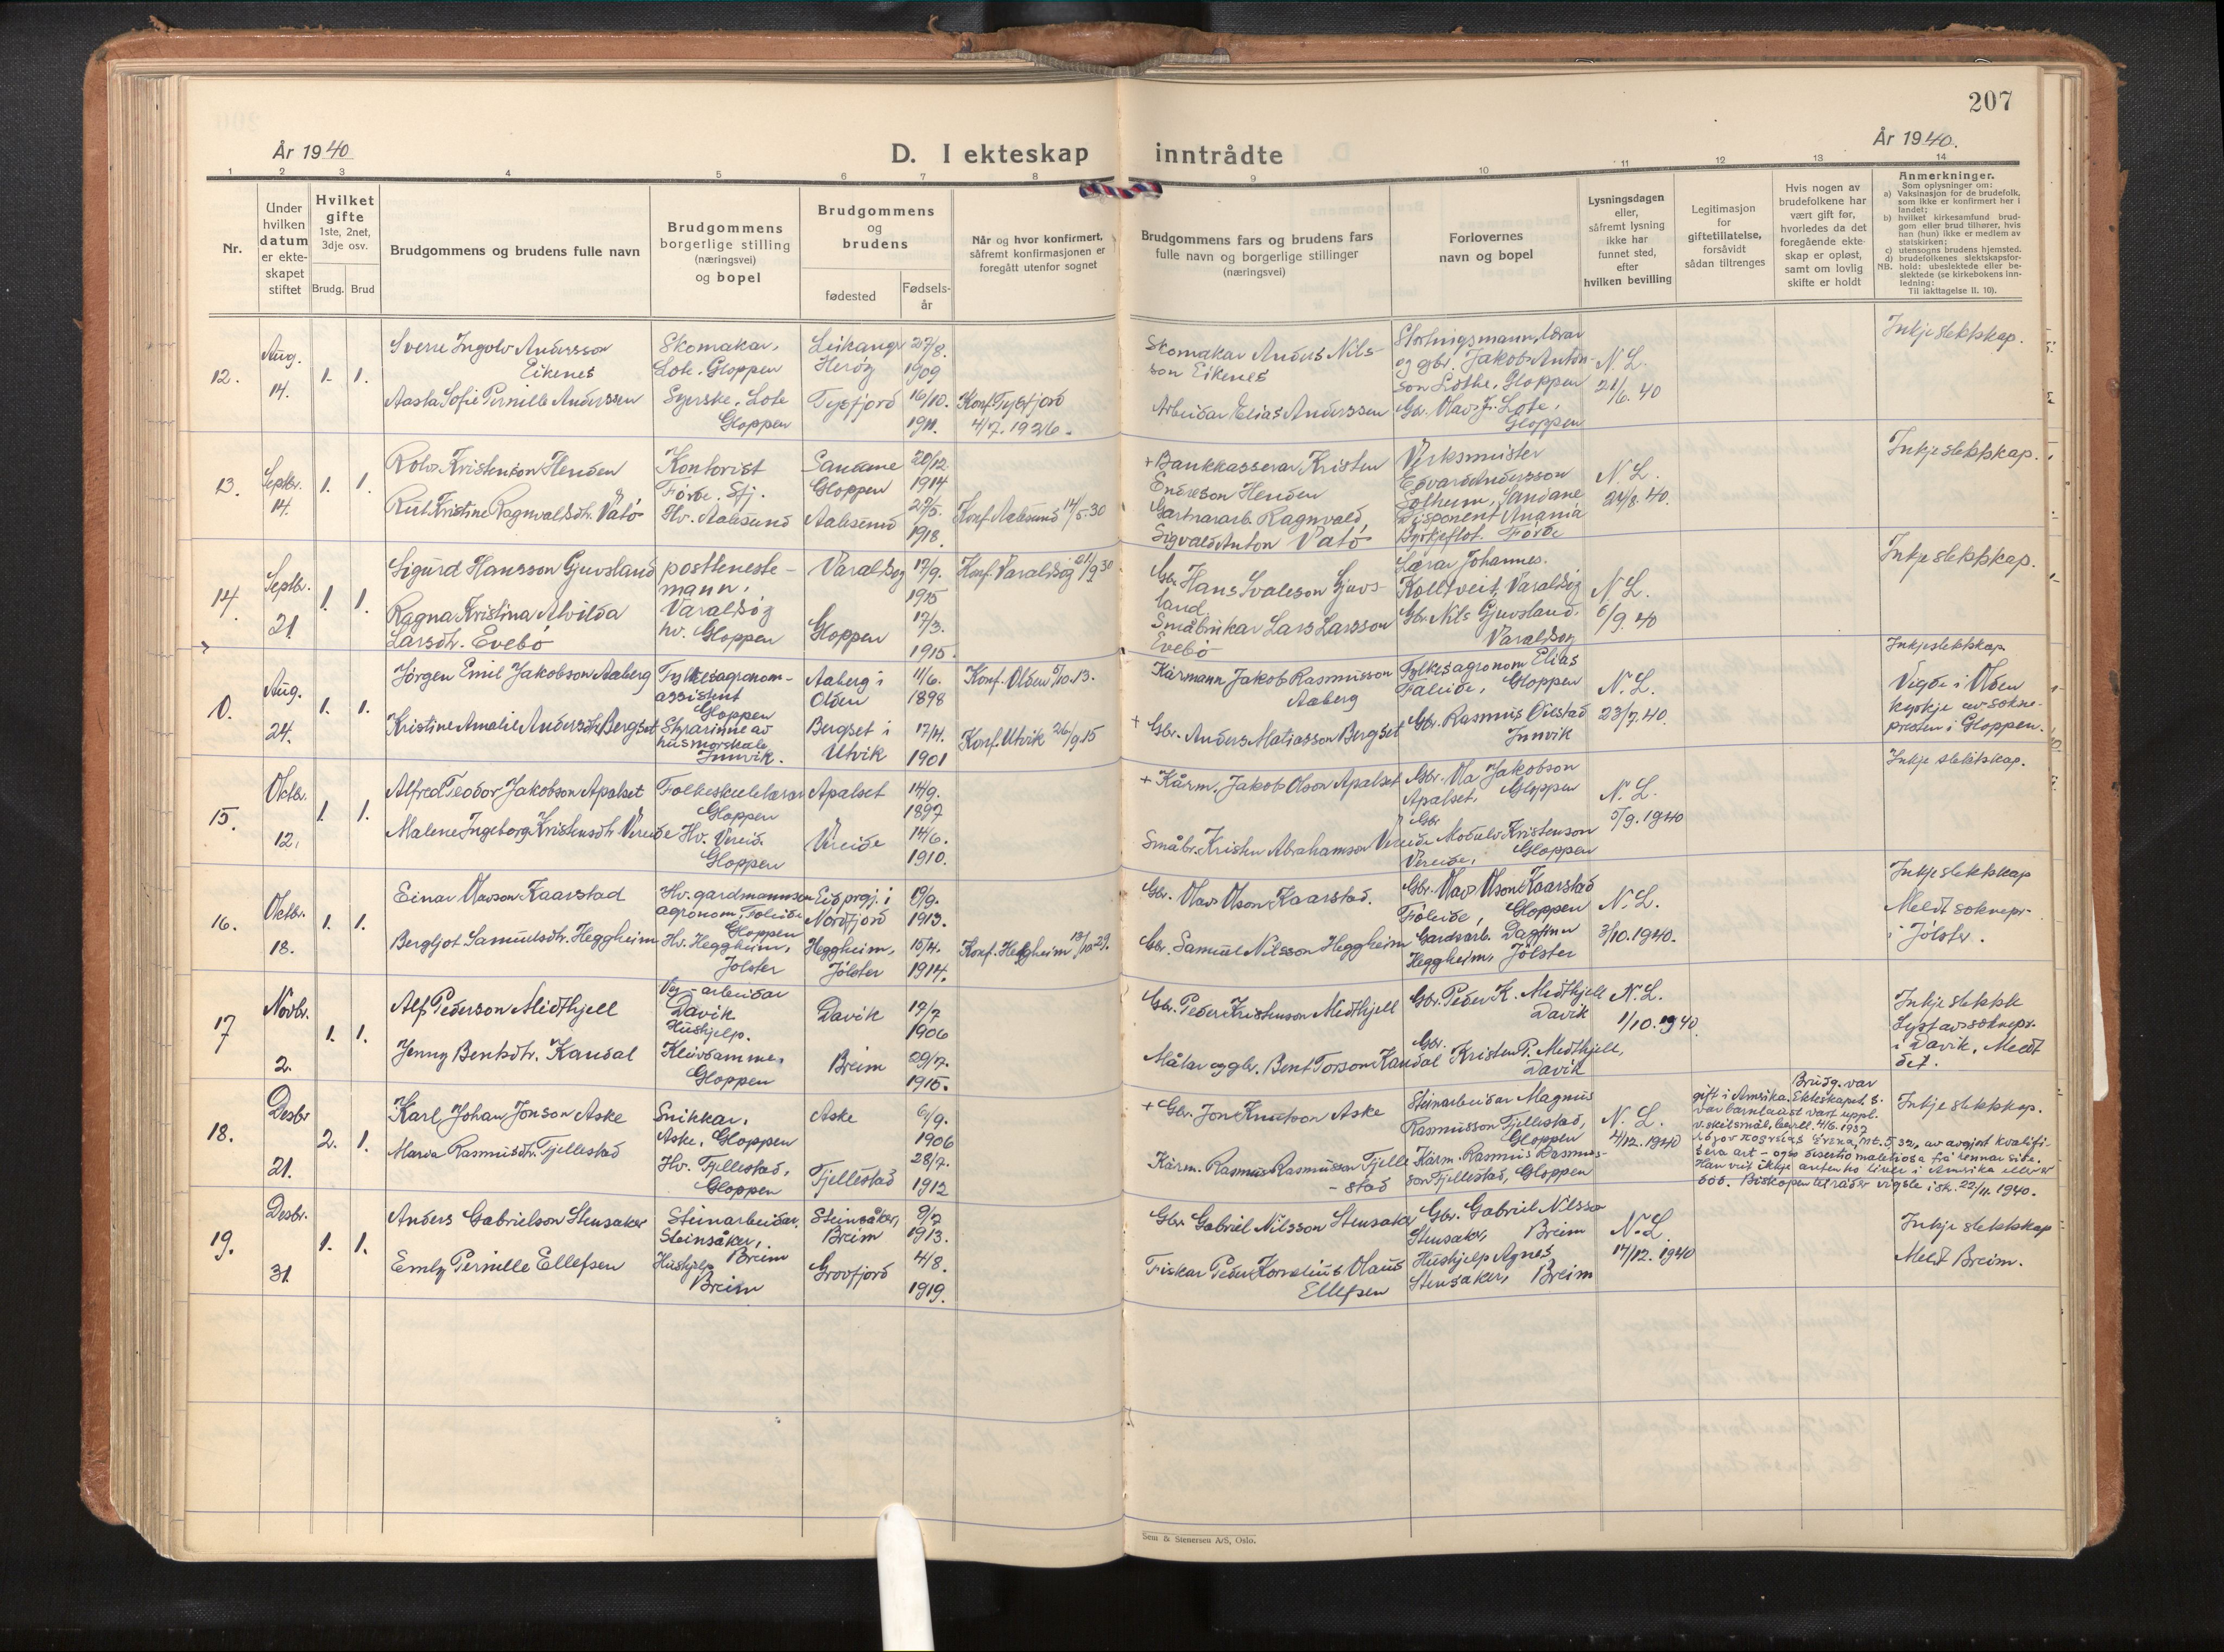 207
År 1940
D. I ekteskap inntrådte
År 1940.
1 2 3 4 5 6 7 8 9 10 11 12 13 14
Nr.
Under
hvilken
datum
er ekte-
skapet
stiftet
Hvilket
gifte
1ste, 2net,
3dje osv.
Brudg. Brud
Brudgommens og brudens fulle navn
Brudgommens
borgerlige stilling
(næringsvei)
og bopel
Brudgommens
og
brudens
fødested
Fødsels-
år
Når og hvor konfirmert,
såfremt konfirmasjonen er
foregått utenfor sognet
Brudgommens fars og brudens fars
fulle navn og borgerlige stillinger
(næringsvei)
Forlovernes
navn og bopel
Lysningsdagen
eller,
såfremt lysning
ikke har
funnet sted,
efter
hvilken bevilling
Legitimasjon
for
giftetillatelse,
forsåvidt
sådan tiltrenges
Hvis nogen av
brudefolkene har
vært gift før,
hvorledes da det
foregående ekte-
skap er opløst,
samt om lovlig
skifte er holdt
Anmerkninger.
Som oplysninger om:
a) Vaksinasjon for de brudefolk,
som ikke er konfirmert her i
landet;
b) hvilket kirkesamfund brud-
gom eller brud tilhører, hvis
han (hun) ikke er medlem av
statskirken;
c) utensogns brudens hjemsted.
d) brudefolkenes slektskapsfor-
hold: ubeslektede eller be-
slektede (se kirkebokens inn-
ledning:
NB. Til iakttagelse II. 10).
12.
Aug.
14.
1. 1.
Sverre Ingolv Andersson
Eikenes
Aasta Sofie Pernille Anderssen
Skomakar,
Lote, Gloppen
Syerske, Lote
Gloppen
Leikanger
Herøy
Tysfjord
27/8.
1909
16/10.
1911.
Konf. Tysfjord
4/7. 1926.
Skomakar Anders Nils-
son Eikenes
Arbeidar Elias Anderssen
Stortingsmann, lærar
og gbr. Jakob Anton-
son Lothe, Gloppen
Gbr. Olav Lote,
Gloppen
N. L.
21/6. 40
Inkje slektskap.
13.
Septbr.
14.
1. 1.
Rolv Kristenson Henden
Rut Kristine Ragnvaldsdtr. Vatø
Kontorist
Førde, Sfj.
Hv. Aalesund
Sandane
Gloppen
Aalesund
20/12
1914
27/5.
1918.
Konf. Aalesund 14/5.30
+ Bankkasserar Kristen
Endreson Henden
Gartnararb. Ragnvald
Sigvald Anton Vatø
Verksmeister
Edvard Andersson
Solheim, Sandane
Disponent Anania
Byrkjeflot. Førde
N. L.
24/8. 40.
Inkje slektskap.
14.
Septbr.
21
1. 1.
Sigurd Hansson Gjuvsland
Ragna Kristina Alvilda
Larsdtr. Evebø
postteneste-
mann,
Varaldsøy
hv. Gloppen
Varaldsøy
Gloppen
17/9.
1915
17/3.
1915.
Konf. Varaldsøy 21/9 30
Gbr. Hans Svaleson Gjuvs-
land.
Småbrukar Lars Larsson
Evebø
Lærar Johannes
Koltveit, Varaldsøy
Gbr. Nils Gjuvsland,
Varaldsøy
N. L.
6/9. 40
Inkje slektskap.
0.
Aug.
24.
1. 1.
Jørgen Emil Jakobson Aaberg
Kristine Amalie Andersdtr. Bergset
Fylkesagronom-
assistent
Gloppen
Styrarinne av
husmorskule
Innvik.
Aaberg i
Olden
Bergset i
Utvik
11/6.
1898
17/4.
1901
Konf. Olden 5/10.13.
Konf. Utvik 26/9.15
Kårmann Jakob Rasmusson
Aaberg
+ Gbr. Anders Matiasson Bergset
Fylkesagronom Elias
Faleide, Gloppen
Gbr. Rasmus Vilestad
Innvik
N. L.
23/7.40.
Inkje slektskap
Vigde i Olden
kyrkje av sokne-
presten i Gloppen.
15.
Oktbr.
12.
1. 1.
Alfred Teodor Jakobson Apalset
Malene Ingeborg Kristensdtr. Vereide
Folkeskulelærar
Gloppen
Hv. Vereid.
Gloppen
Apalset
Vereide
14/9.
1897
14/6.
1910.
+ Kårm. Jakob Olson Apalset
Småbr. Kristen Abrahamson Vereide
Gbr. Ola Jakobson
Apalset, Gloppen
Gbr
Modulv Kristenson
Vereide, Gloppen
N. L.
5/9. 1940
Inkje slektskap.
16.
Oktbr.
18.
1. 1.
Einar Olavson Kaarstad
Bergljot Samuelsdtr. Heggheim
Hv. gardmannson
agronom, Føleide
Gloppen
Hv. Heggheim,
Jølster
Eid prgj. i
Nordfjord
Heggheim,
Jølster
19/9.
1913.
15/4.
1914.
Konf. Helgheim 13/10 29.
Gbr. Olav Olson Kaarstad.
Gbr. Samuel Nilsson Heggheim
Gbr. Olav Olson Kaarstad
Føleide, Gloppen
Gardsarb. Dagfinn
Heggheim, Jølster
N. L.
3/10.1940.
Inkje slektskap
Meldt soknepr.
i Jølster.
17
Novbr.
2.
1. 1.
Alf Pederson Midthjell
Jenny Bentsdtr. Kandal
Veg-arbeidar
Davik
Hushjelp.
Kleivdamme,
Gloppen
Davik
Breim
17/7
1906
29/7.
1915.
Gbr. Peder Kristenson Midthjell
Målar og gbr. Bent Torson Kandal
Gbr. Peder K. Midthjell
Davik
Gbr.
Kristen P. Midthjell,
Davik
N. L.
1/10. 1940.
Inkje slektsk
Lyst av soknepr.
i Davik. Meldt
det.
18.
Desbr
21.
2. 1.
Karl Johan Jonson Aske
Maria Rasmusdtr. Fjellestad
Snikkar,
Aske, Gloppen
Hv. Fjellestad,
Gloppen
Aske
Fjellestad
6/9.
1906
28/7.
1912
+ Gbr. Jon Knutson Aske
Kårm. Rasmus Rasmusson Fjelle
-stad
Steinarbeidar Magnus
Rasmusson Fjellestad,
Gloppen
Kårm. Rasmus Rasmus-
son Fjellestad, Gloppen
N. L.
4/12. 1940
Brudg. var
gift i Amerika. Ekteskapet, s.
var barnlaust vart uppl.
v. skilsmål, bevill. 4/6. 1937
av avgjort kvalifi-
sera art - også desertio malitiosa frå hennar side.
Han veit ikkje anten ho liver i Amerika eller er
død. Biskopen tilråder vigsle i sk. 22/11. 1940.
Inkje slektskap.
19.
Desbr.
31.
1. 1.
Anders Gabrielson Stensaker
Emly Pernille Ellefsen
Steinarbeidar,
Steinsåker,
Breim
Hushjelp
Breim
Steinsåker,
Breim
Grovfjord
9/7
1913.
4/8.
1919.
Gbr. Gabriel Nilsson Stensaker
Fiskar Peder Kornelius Olaus
Ellefsen
Gbr. Gabriel Nilsson
Stensaker, Breim
Hushjelp Agnes
Stensaker, Breim
N. L.
17/12. 1940
Inkje slektskap
Meldt Breim.
Sem & Stenersen A/S, Oslo.